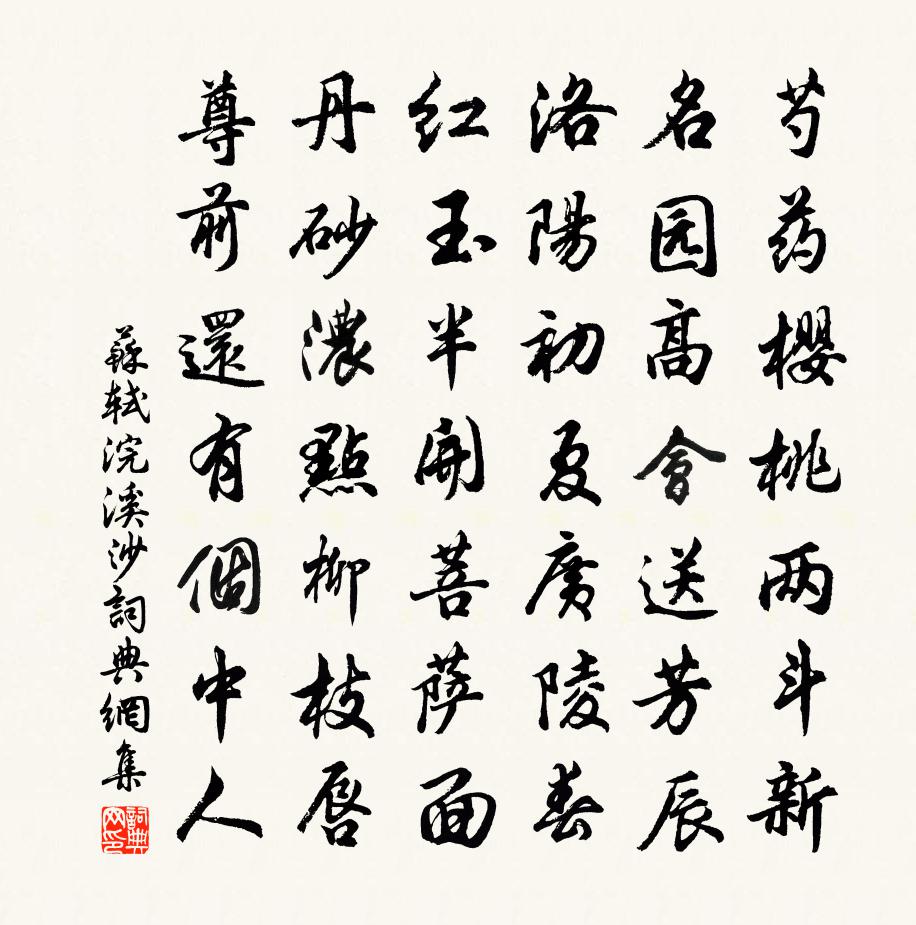 芍药櫻桃两斗新
名园高會送芳辰
洛陽初夏廣陵春
紅玉半開菩薩面
丹砂濃點柳枝唇
尊前還有個中人
蘇軾浣溪沙詞典網集
詞典网印